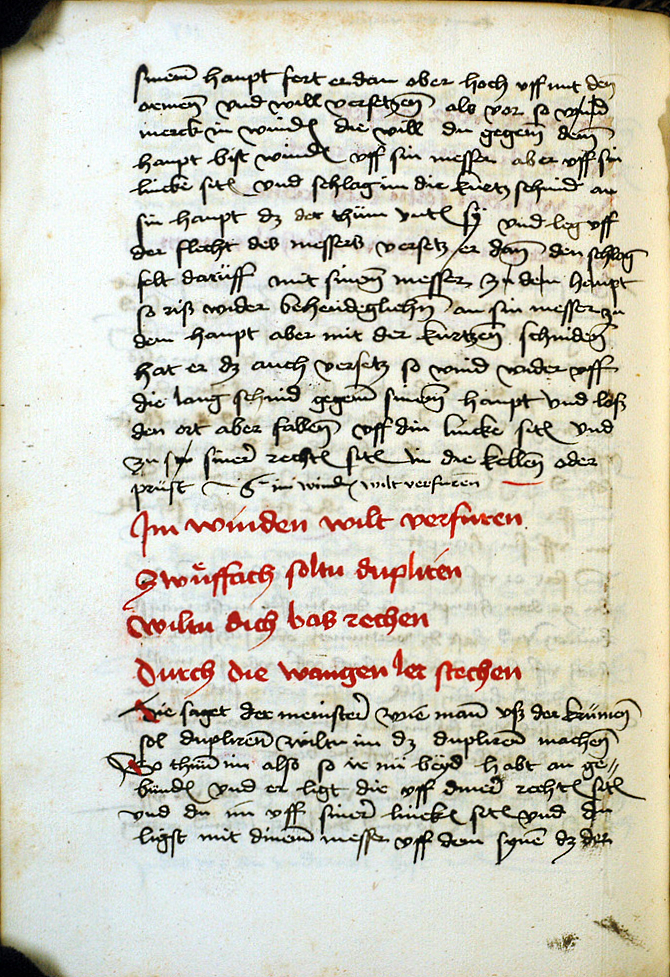 sinem haupt fert er dan aber hoch uff mit den
armen und will versetzen als vor so wind
merck in winden die will du gegem dem
haupt bist winden uff sin messer aber uff sin
lincke sitt und schlag im die kurtz schnid an
sin haupt dz der thüm unten sy und leg uff
der flecht des messers versetz er dann den schlag
felt daruff mit sinem messer zu dem haupt
so riß wider behendeglichen an sin messer zu
dem haupt aber mit der kurtzen schniden
hat er dz auch versetz so wind wider uff
die lang schnid gegem sinem haupt und loß
den ort aber fallen uff din lincke sitt und
zu siner rechten sitt in die kellen oder
prust im winden wilt verfuren
Im winden wilt verfuren
Zwuffach soltu dupliren
Wiltu dich bas rechen
Durch die wangen ler stechen
Hie saget der meinster wie man uß der krümen
sol dupliren wiltu im dz dupliren machen
thün im also so ir nü beyd habt an ge=
bunden und er ligt die uff diner rechten sitt
und du im uff siner lincken sitt und du
ligst mit dinem messer uff dem synen dz der